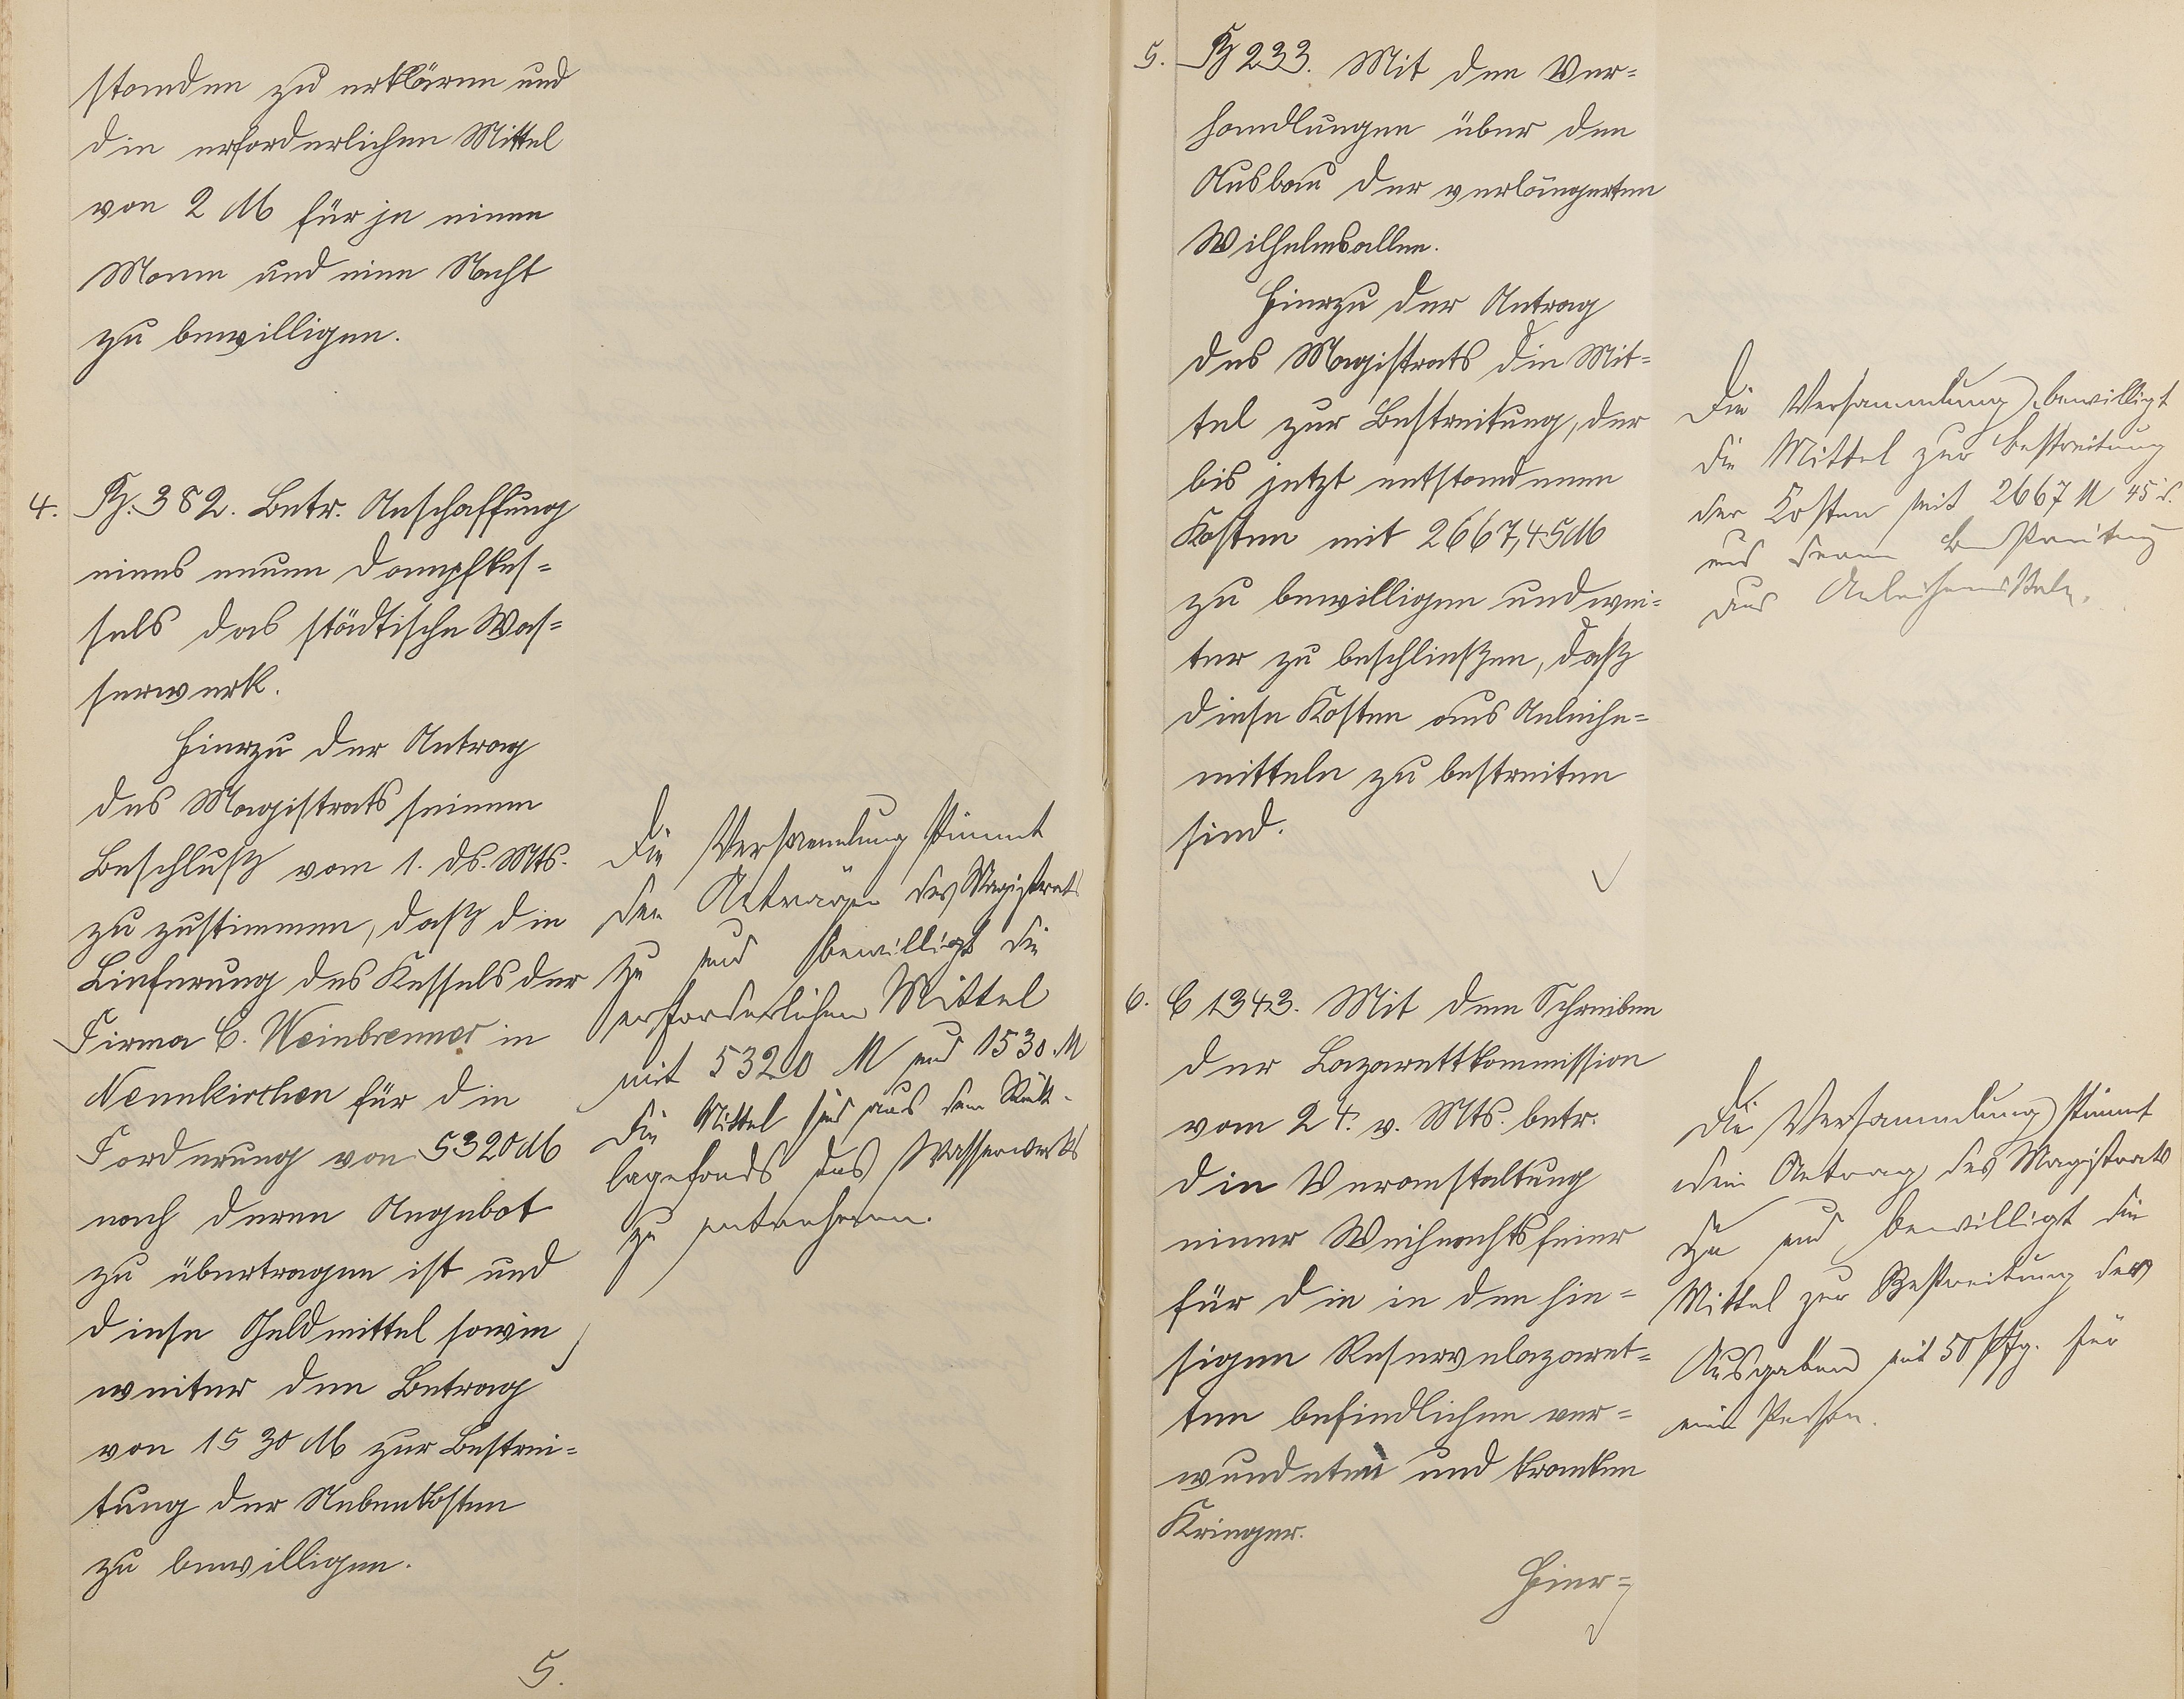 standen zu erklären und
die erforderlichen Mittel
von 2 M für je einen
Mann und eine Nacht
zu bewilligen.
4. Tz. 382. Betr. Anschaffung
eines neuen Dampfkes=
sels das städtische Was=
serwerk.
Hierzu der Antrag
des Magistrats seinem
Beschluß vom 1. ds. Mts.
zu zustimmen, daß die
Lieferung des Kessels der
Firma C. Weinbrenner in
Neunkirchen für die
Forderung von 5320 M
nach deren Angebot
zu übertragen ist und
diese Geldmittel sowie
weiter den Betrag
von 1530 M zur Bestrei=
tung der Nebenkosten
zu bewilligen.
Die Versammlung stimmt
den Anträgen des Magistrats
zu und bewilligt die
erforderlichen Mittel
mit 5320 M und 1530 M
Die Mittel sind aus dem Rück-
lagefonds des Wasserwerks
zu entnehmen.
5.
5. 233. Mit den Ver=
handlungen über den
Ausbau der verlängerten
Wilhelmsallee.
Hierzu der Antrag
des Magistrats die Mit=
tel zur Bestreitung, der
bis jetzt entstandenen
Kosten mit 2667,45 M
zu bewilligen und wei=
ter zu beschließen, daß
diese Kosten aus Anleihe=
mitteln zu bestreiten
sind.
Die Versammlung bewilligt
die Mittel zur Bestreitung
der Kosten mit 2667 M 45
und deren Bestreitung
aus
6. C 1343. Mit dem Schreiben
der Lazarettkommission
vom 24. v. Mts. betr.
die Veranstaltung
einer Weihnachtsfeier
für die in den hie=
sigen Reservelazaret=
ten befindlichen ver=
wundeten und kranken
Krieger.
Hier=
Die Versammlung stimmt
dem Antrag des Magistrats
zu und bewilligt die
Mittel zur Bestreitung der
Ausgaben mit 50 Pfg. für
eine Person.